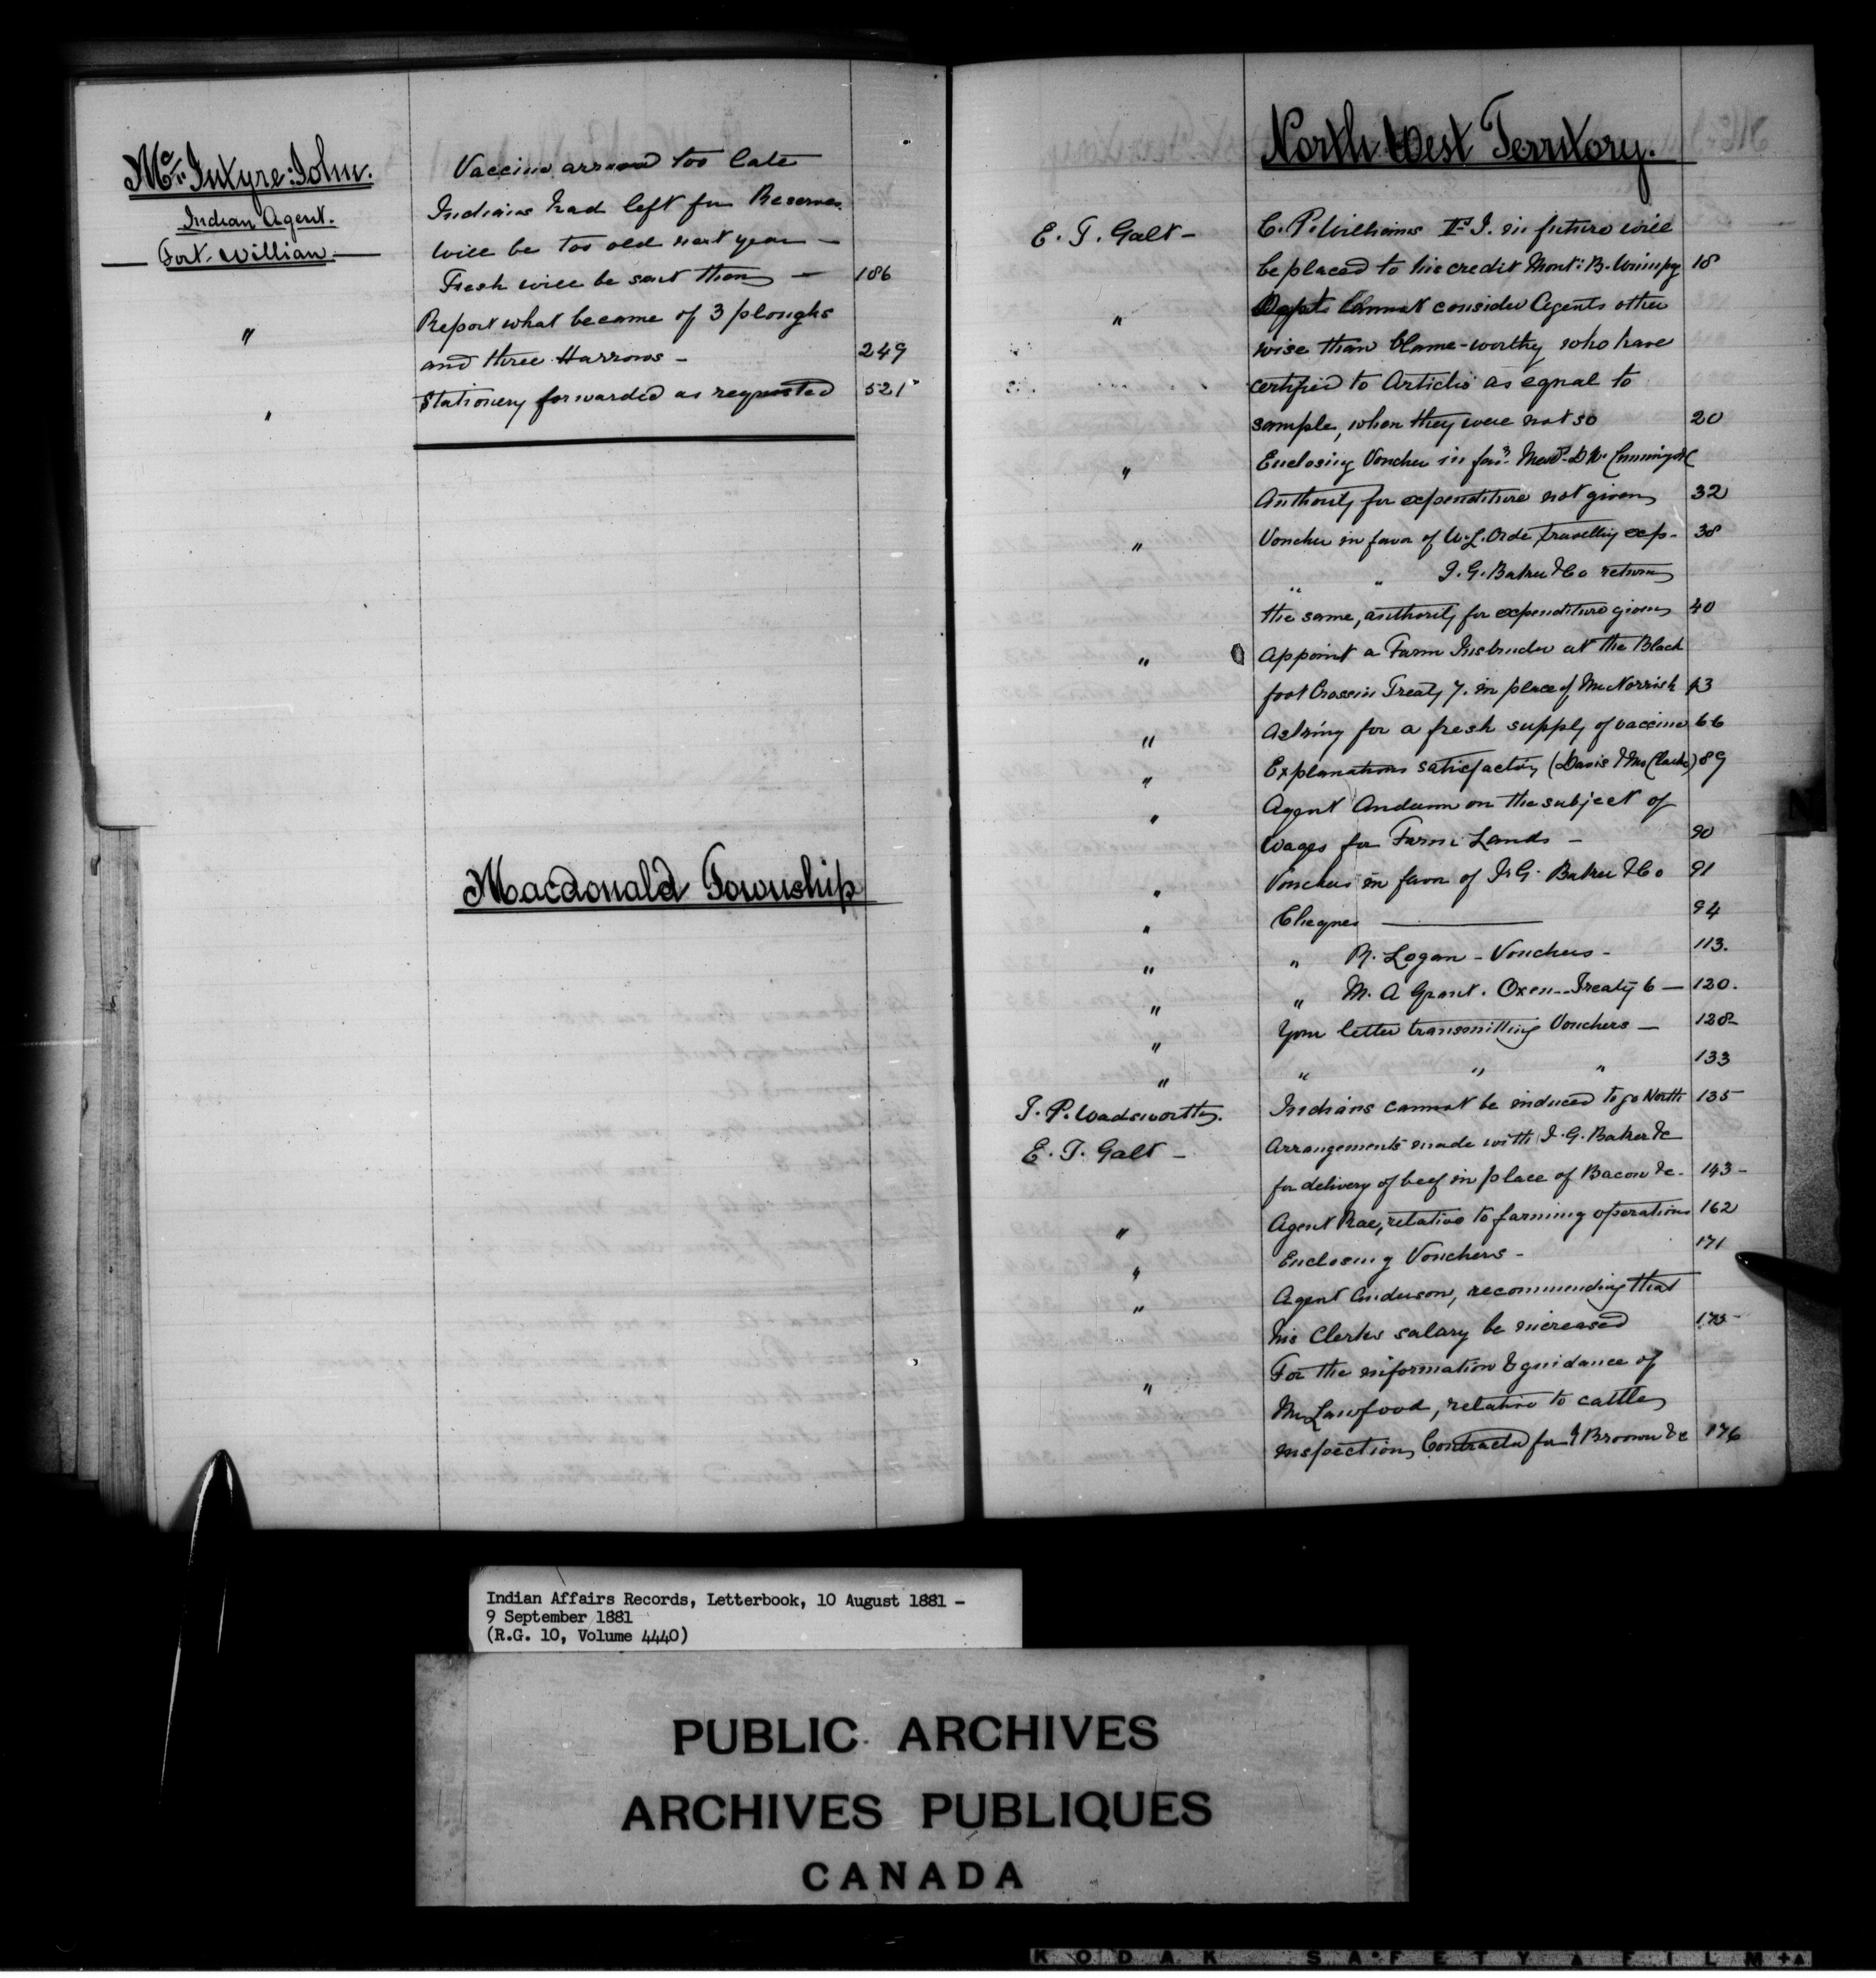 Mc Intyre: John.
Indian Agent.
Fort. William
Vaccine arrived too late
Indians had left for Reserves.
will be too old next year —
Fresh will be sent then — 186
" Report what became of 3 ploughs
and three Harrows - 249
" Stationery forwarded as requested 521
Macdonald Township
North West Territory.
E. T. Galt - C. P. Williams in future will
be placed to his credit Mont: B. Winnipg 18
" Dept. Cannot consider Agents other
wise than blame-worthy who have
certified to Articles as equal to
sample, when they were not so 20
" Enclosing Voucher in favr.
Authority for expenditure not given 32
" Voucher in favor of W. L. Orde travelling exp- 38
" " I. G. Baker & Co return
the same, authority for expenditure given 40
" Appoint a Farm Instructor at the Black
foot Crossin Treaty 7. in place of Mr Norrish 43
" Asking for a fresh supply of vaccine 66
" Explanations satisfactory (Davis & McClarke) 89
" Agent Anderson on the subject of
wages for Farm Lands - 90
" Vouchers in favor of I. G. Baker & Co 91
" Cheques — 94
" " R. Logan - Vouchers - 113.
" " M. A Grant. Oxen - Treaty 6 — 120.
" Your letter transmitting Vouchers — 128-
" " " " 133
T. P. Wadsworth. Indians cannot be induced to go North 135
E. T. Galt - Arrangements made with I. G. Baker &c
for delivery of beef in place of Bacon &c. 143-
" Agent Rae, relative to farming operations 162
" Enclosing Vouchers - 171
" Agent Anderson, recommending that
his Clerks salary be increased 173-
" For the information & guidance of
Mr Lawford, relative to cattle
inspection, for Broown &c 176
N
Indian Affairs Records, Letterbook, 10 August 1881 -
9 September 1881
(R.G. 10, Volume 4440)
PUBLIC ARCHIVES
ARCHIVES PUBLIQUES
CANADA
KODAK SAFETY FILM